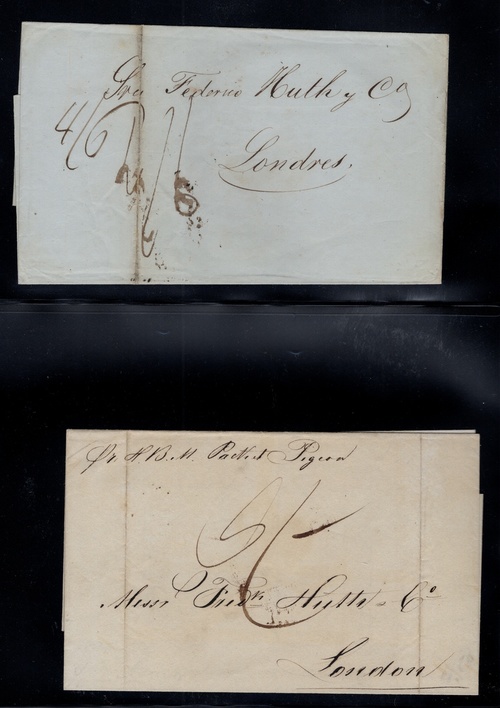 Sres Federico Huth y Co
4/6
Londres.
Pr H. B. M. Packet Pigeon
Messrs Fredk. Huth & Co
London